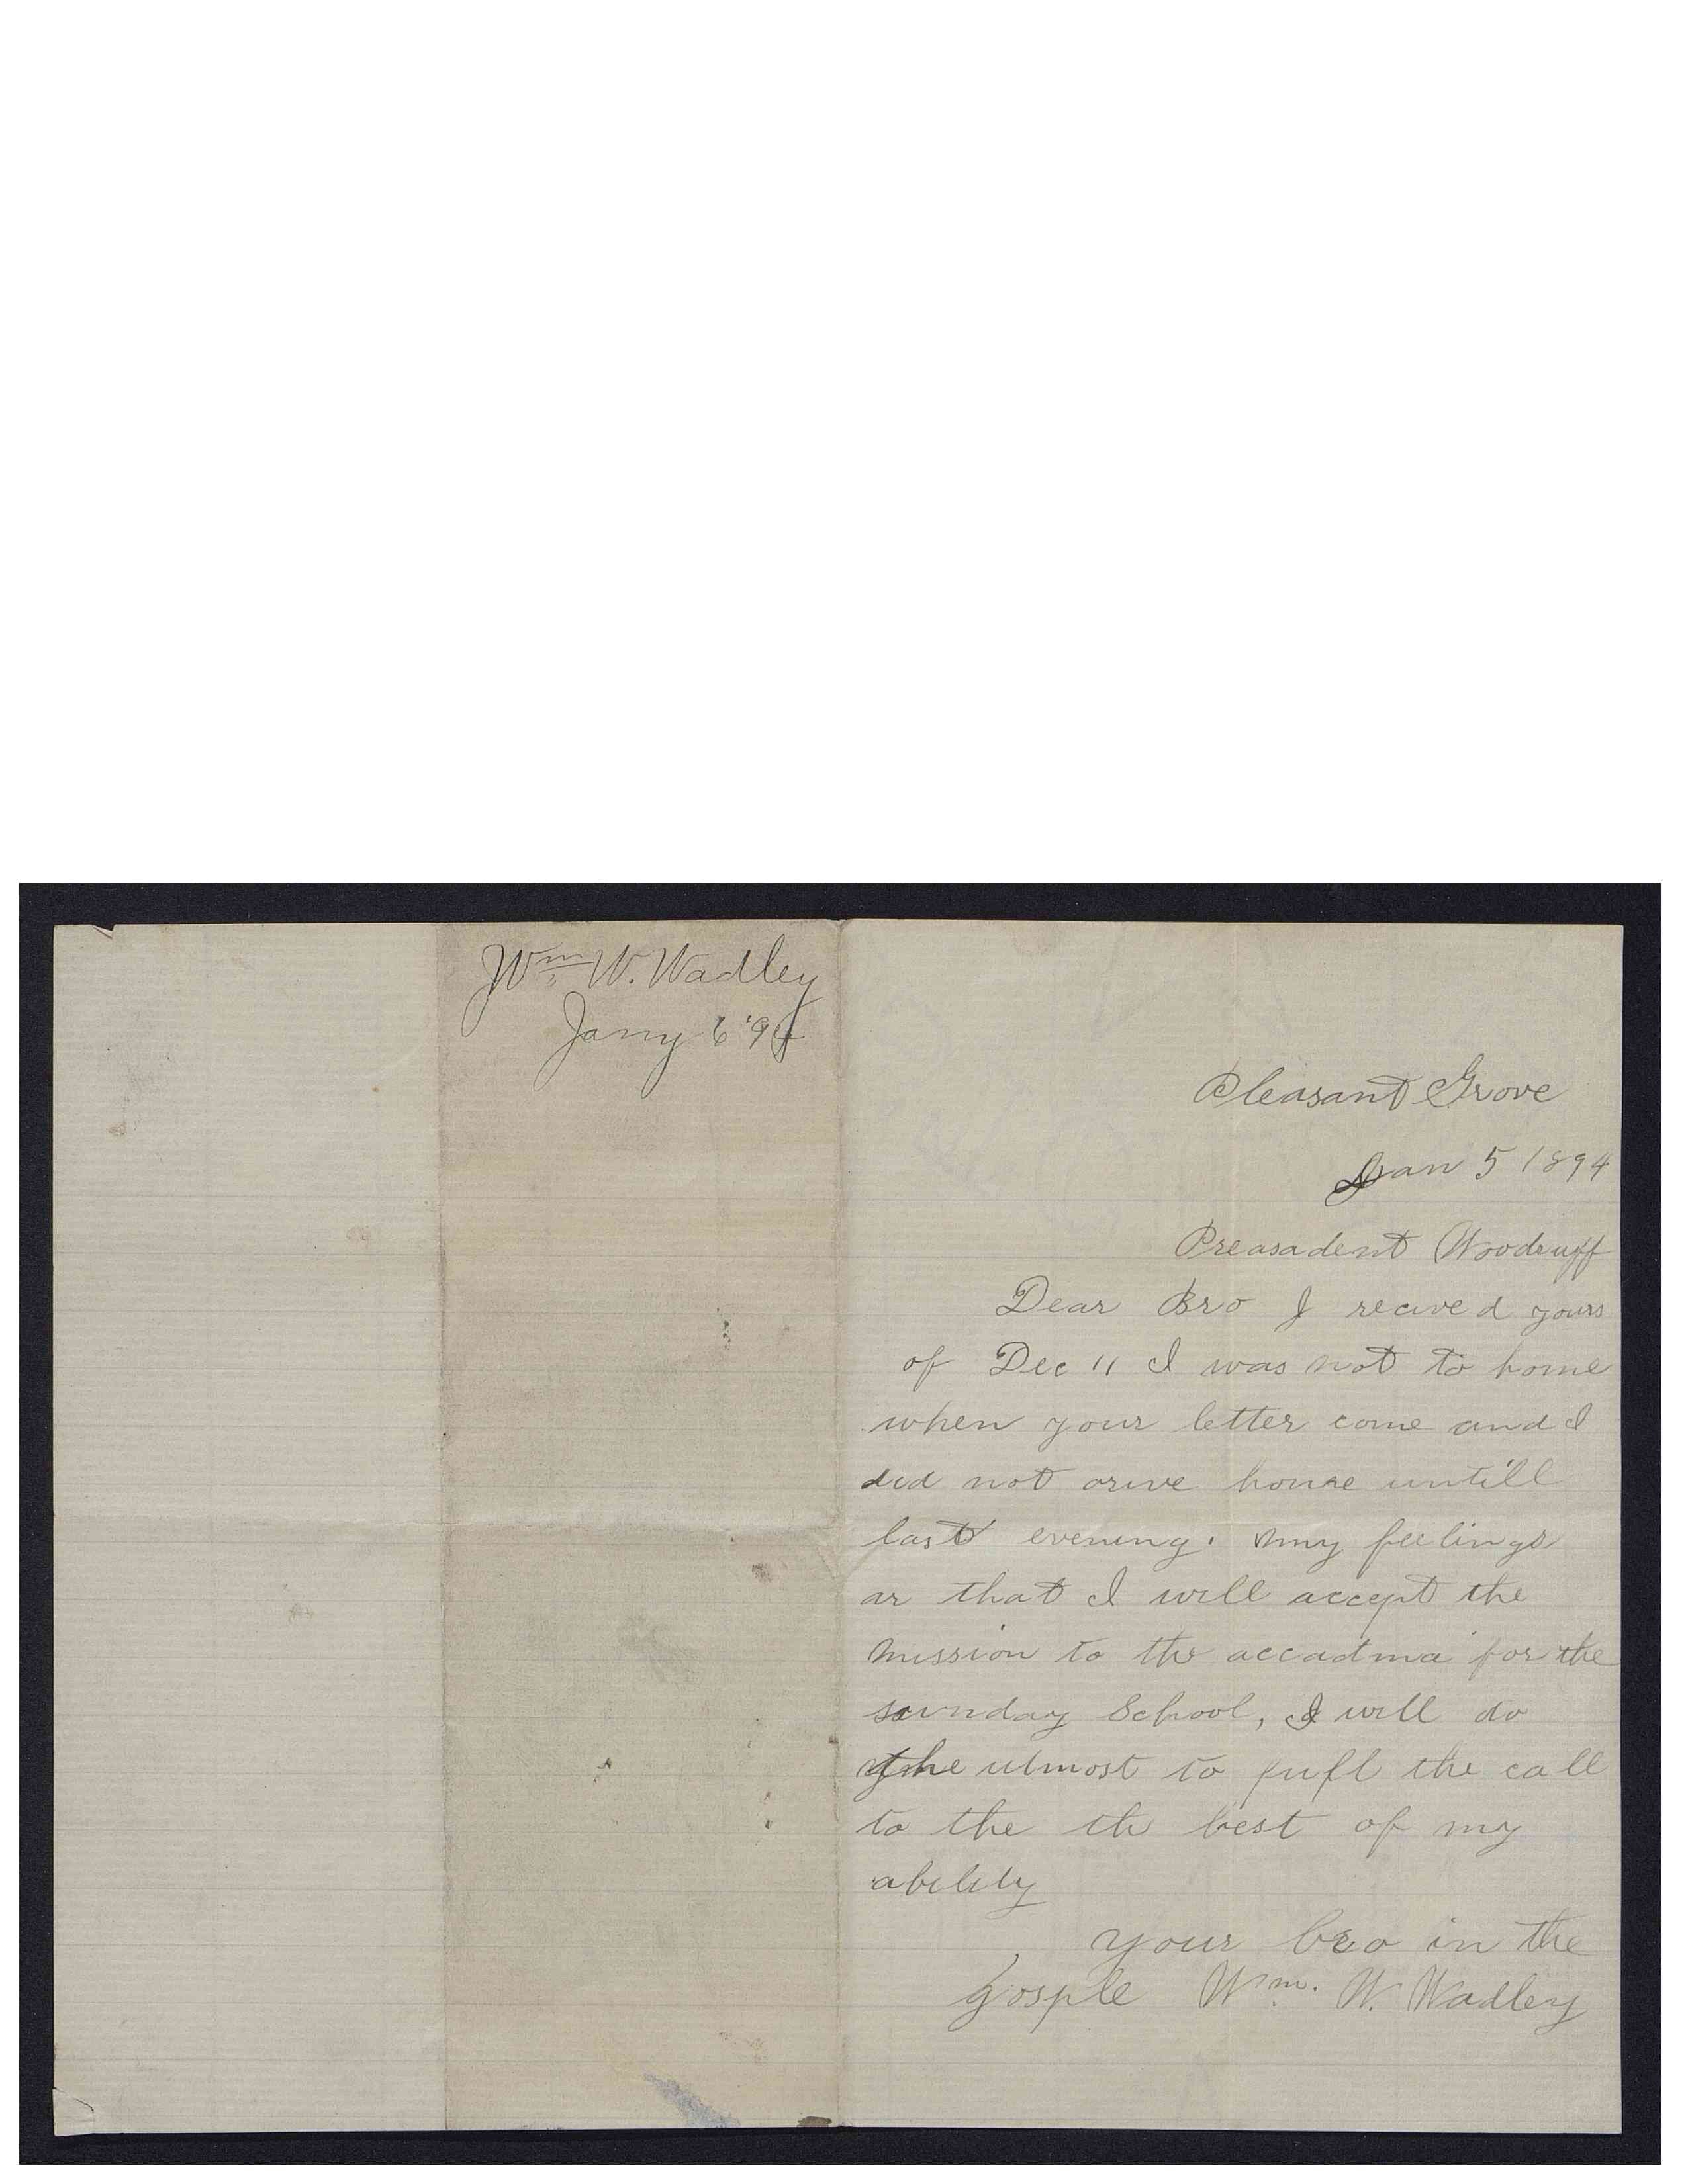 Wm W. Wadley
Jany 6 '94
Pleasant Grove
Jan 5 1894
Preasadent Woodruff
Dear Bro I recived yours
of Dec 11 I was not to home
when your letter come and I
did not arive home untill
last evening. my feelings
ar that I will accept the
mission to the accadma for the
sunday School, I will do
the utmost to fufl the call
to the th best of my
ability
your bro in the
gosple Wm. W. Wadley